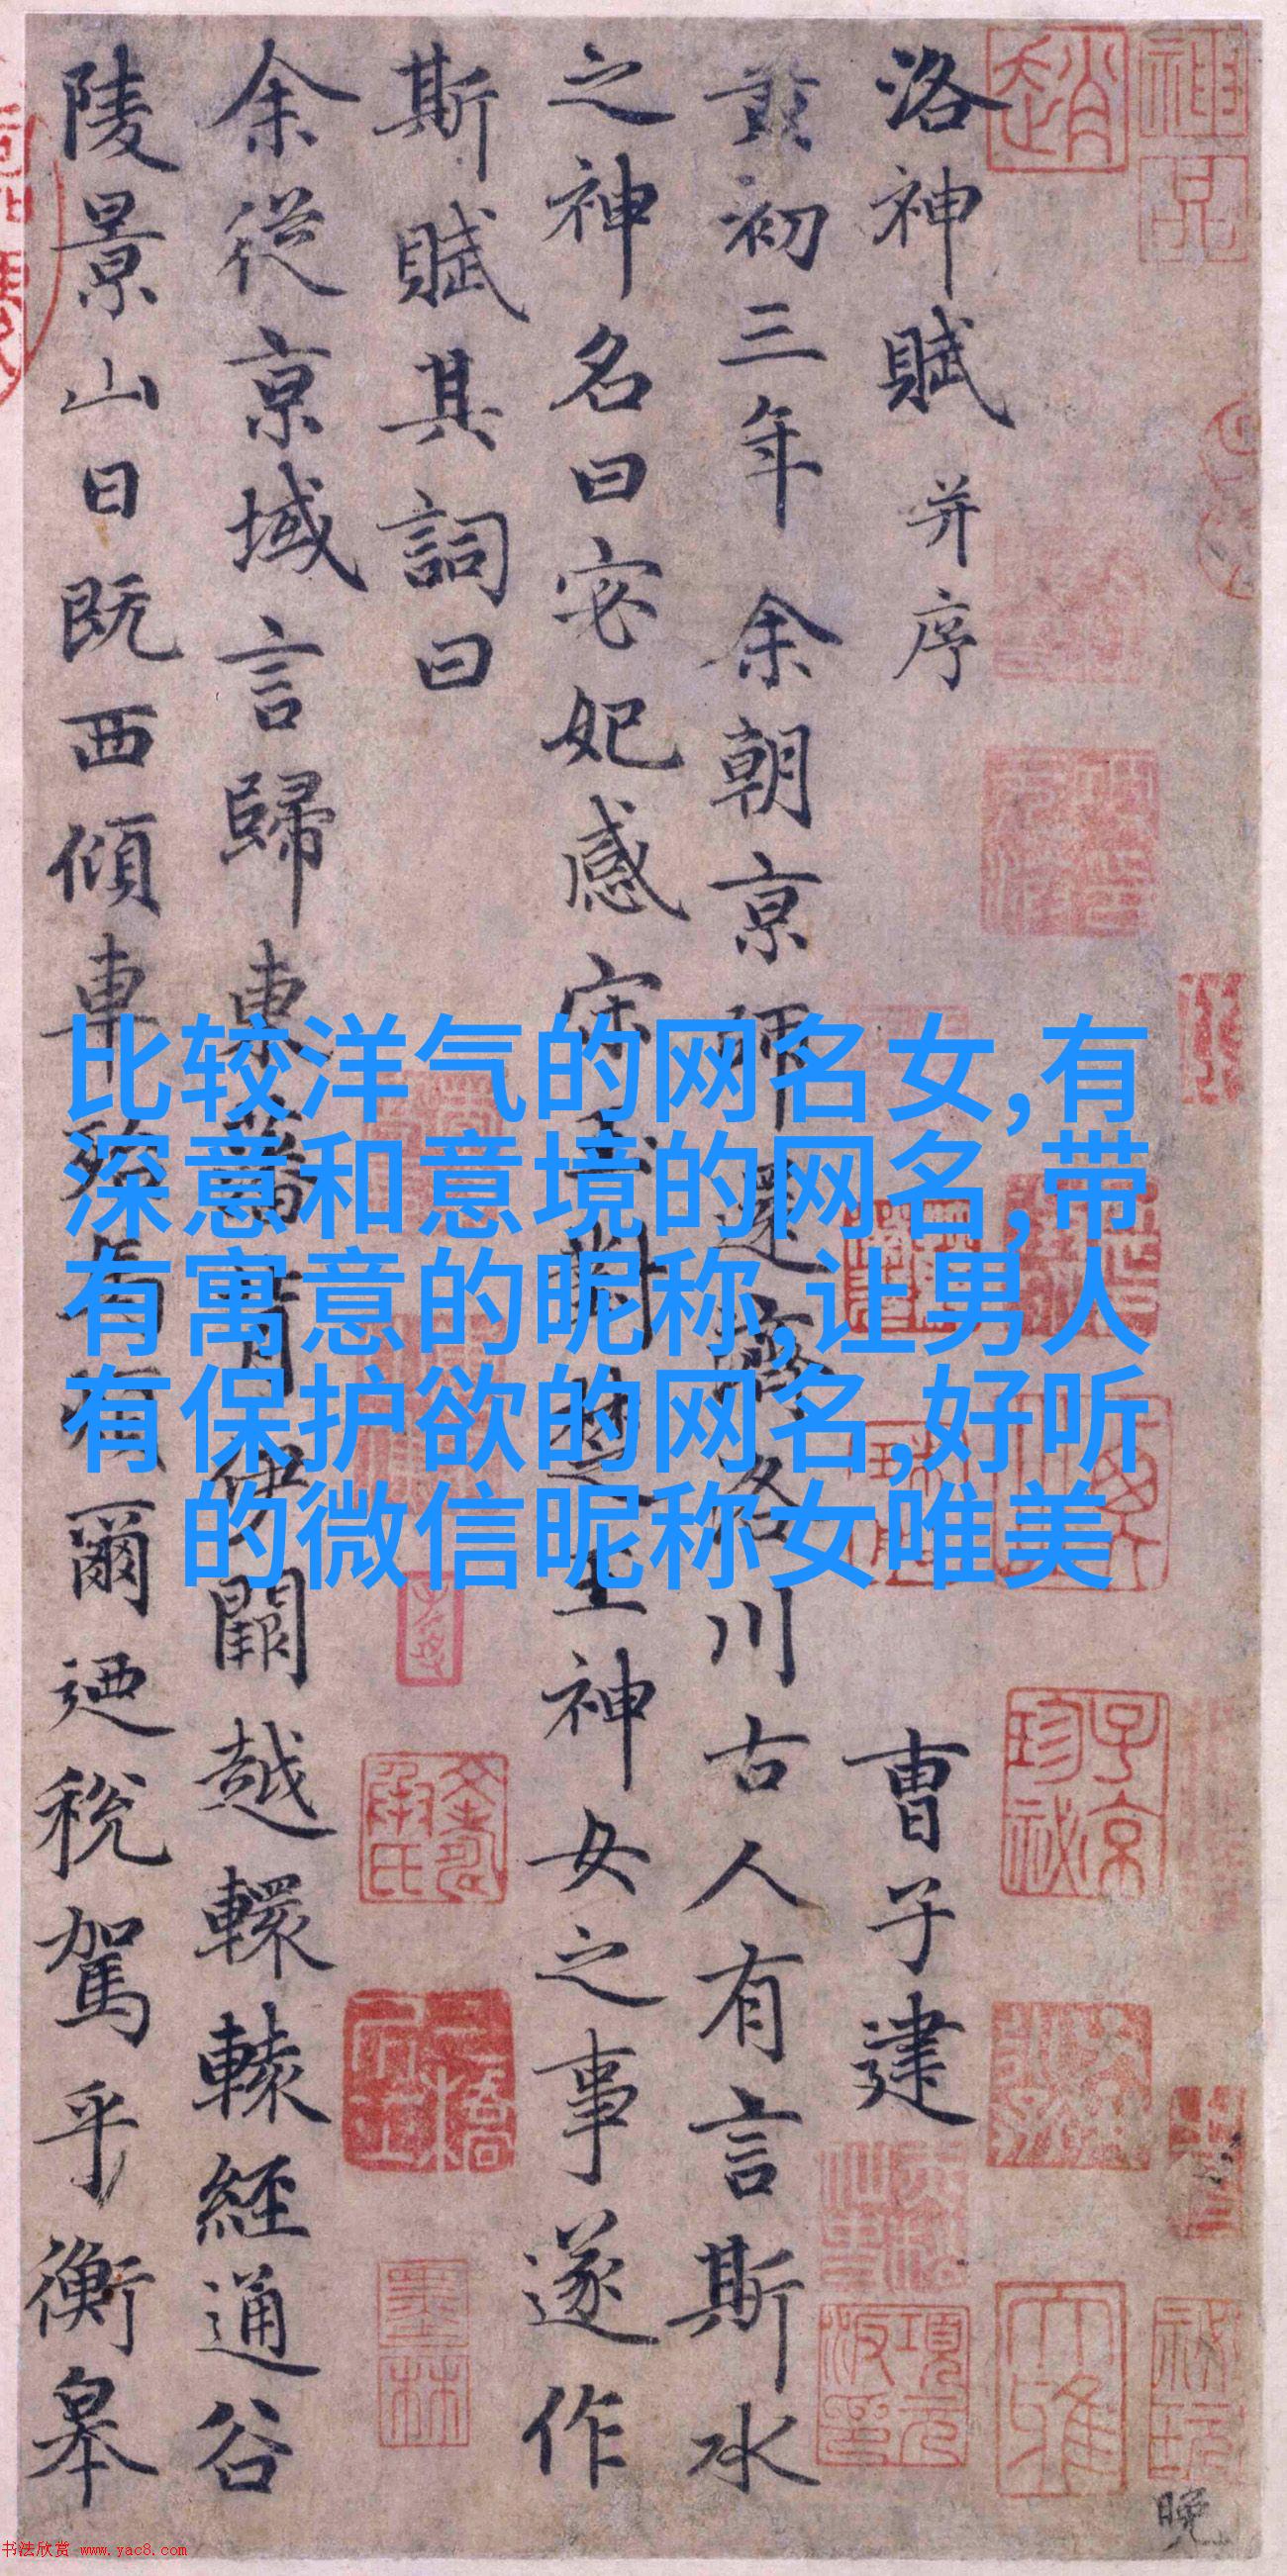 洛神賦 并序 曹子建
黄初三年余朝京師還濟洛川古人有言斯水
之神名曰宓妃感宋玉對楚王神女之事遂作
斯賦其詞曰
余從京域言歸東藩背伊闕越轘轅經通谷
陵景山日既西傾車殆馬煩爾迺稅駕乎衡皋
比较洋气的网名女,有
深意和意境的网名,带
有寓意的昵称,让男人
有保护欲的网名,好听
的微信昵称女唯美
趙
神品
子京珍祕
項元汴印
墨林
大雅
晚
书法欣赏 www.yac8.com